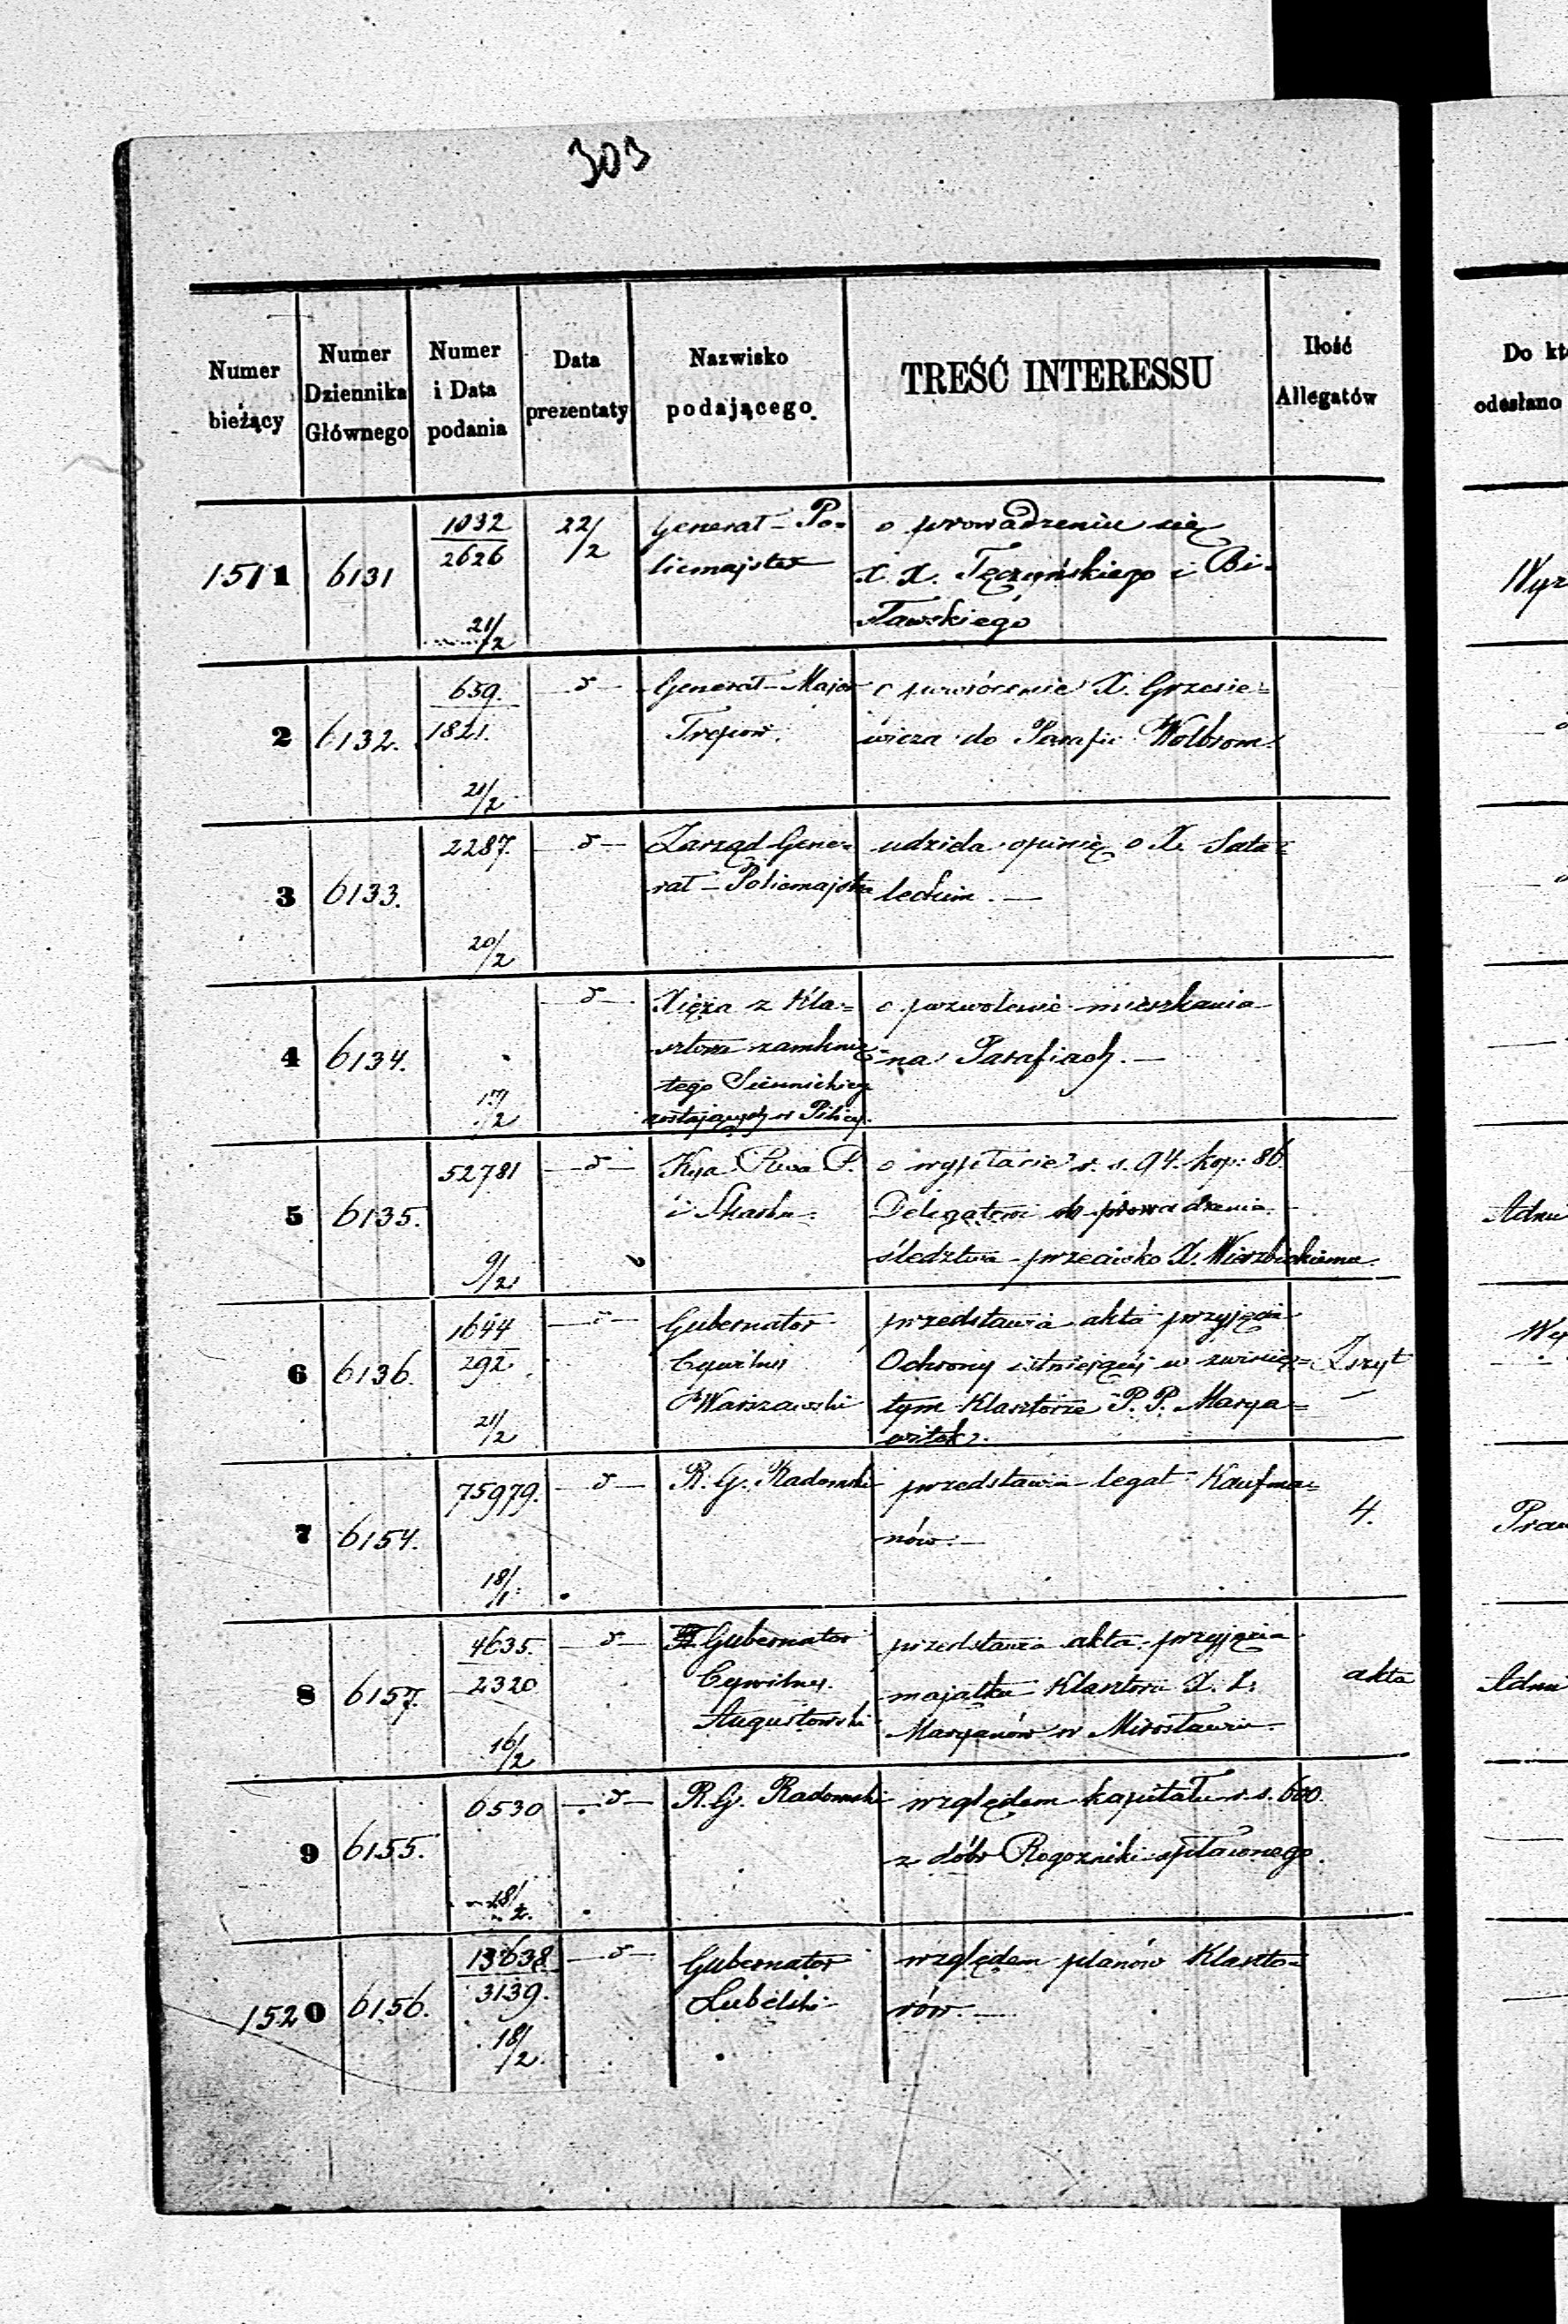 303
Numer bieżący
Numer Dziennika Głównego
Numer i Data podania
Data prezentaty
Nazwisko podającego
TREŚĆ INTERESSU
Ilość Allegatów
Do kt
odesłano
1511 6131 1032/2626 21/2 22/2
Generał-Po-
licmajster
o prowadzeniu się
X. X. Tęczyńskiego i Bi-
sławskiego
Wyz
2 6132. 659./1821. 21/2 —d—
Generał-Major
Trepow.
o powrócenie X. Grzesie-
wicza do Parafii Wolbrom.
3 6133. 2287. 20/2 —d—
Zarząd Gene-
rał-Policmajstra
udziela opinię o X. Sata-
leckim. —
4 6134. 17/2 —d—
Xięża z Kla-
sztoru zamknię-
tego Siennickiego
zostających w Pilicy.
o pozwolenie mieszkania
na Parafiach. —
5 6135. 52781 9/2 —d—
Kja Rwa P.
i Skarbu.
o wypłacie r. s. 94. kop: 86.
Delegatowi do prowadzenia
śledztwa przeciwko X. Wierzbickiemu.
Adm
6 6136. 1644/292. 21/2 —"—
Gubernator
Cywilny
Warszawski
przedstawia akta przyjęcia
Ochrony istniejącej w zwinię-
tym Klasztorze P. P. Marya-
witek.
Zszyt
Wy
7 6154. 75979. 18/1. —d—
R. G. Radomski
przedstawia legat Kaufma-
nów. —
4.
Praw
8 6157. 4635./2320 16/2 —d—
Gubernator
Cywilny
Augustowski
przedstawia akta przyjęcia
majątku Klasztoru X. X.
Maryanów w Mirosławiu.
akta
Adm
9 6155. 6530 18/2. —d—
R. G. Radomski
względem kapitału r. s. 600.
z dóbr Rogoźniki spławionego.
1520 6156. 13638/3139. 18/2. —d—
Gubernator
Lubelski
względem planów Klaszto-
rów. —